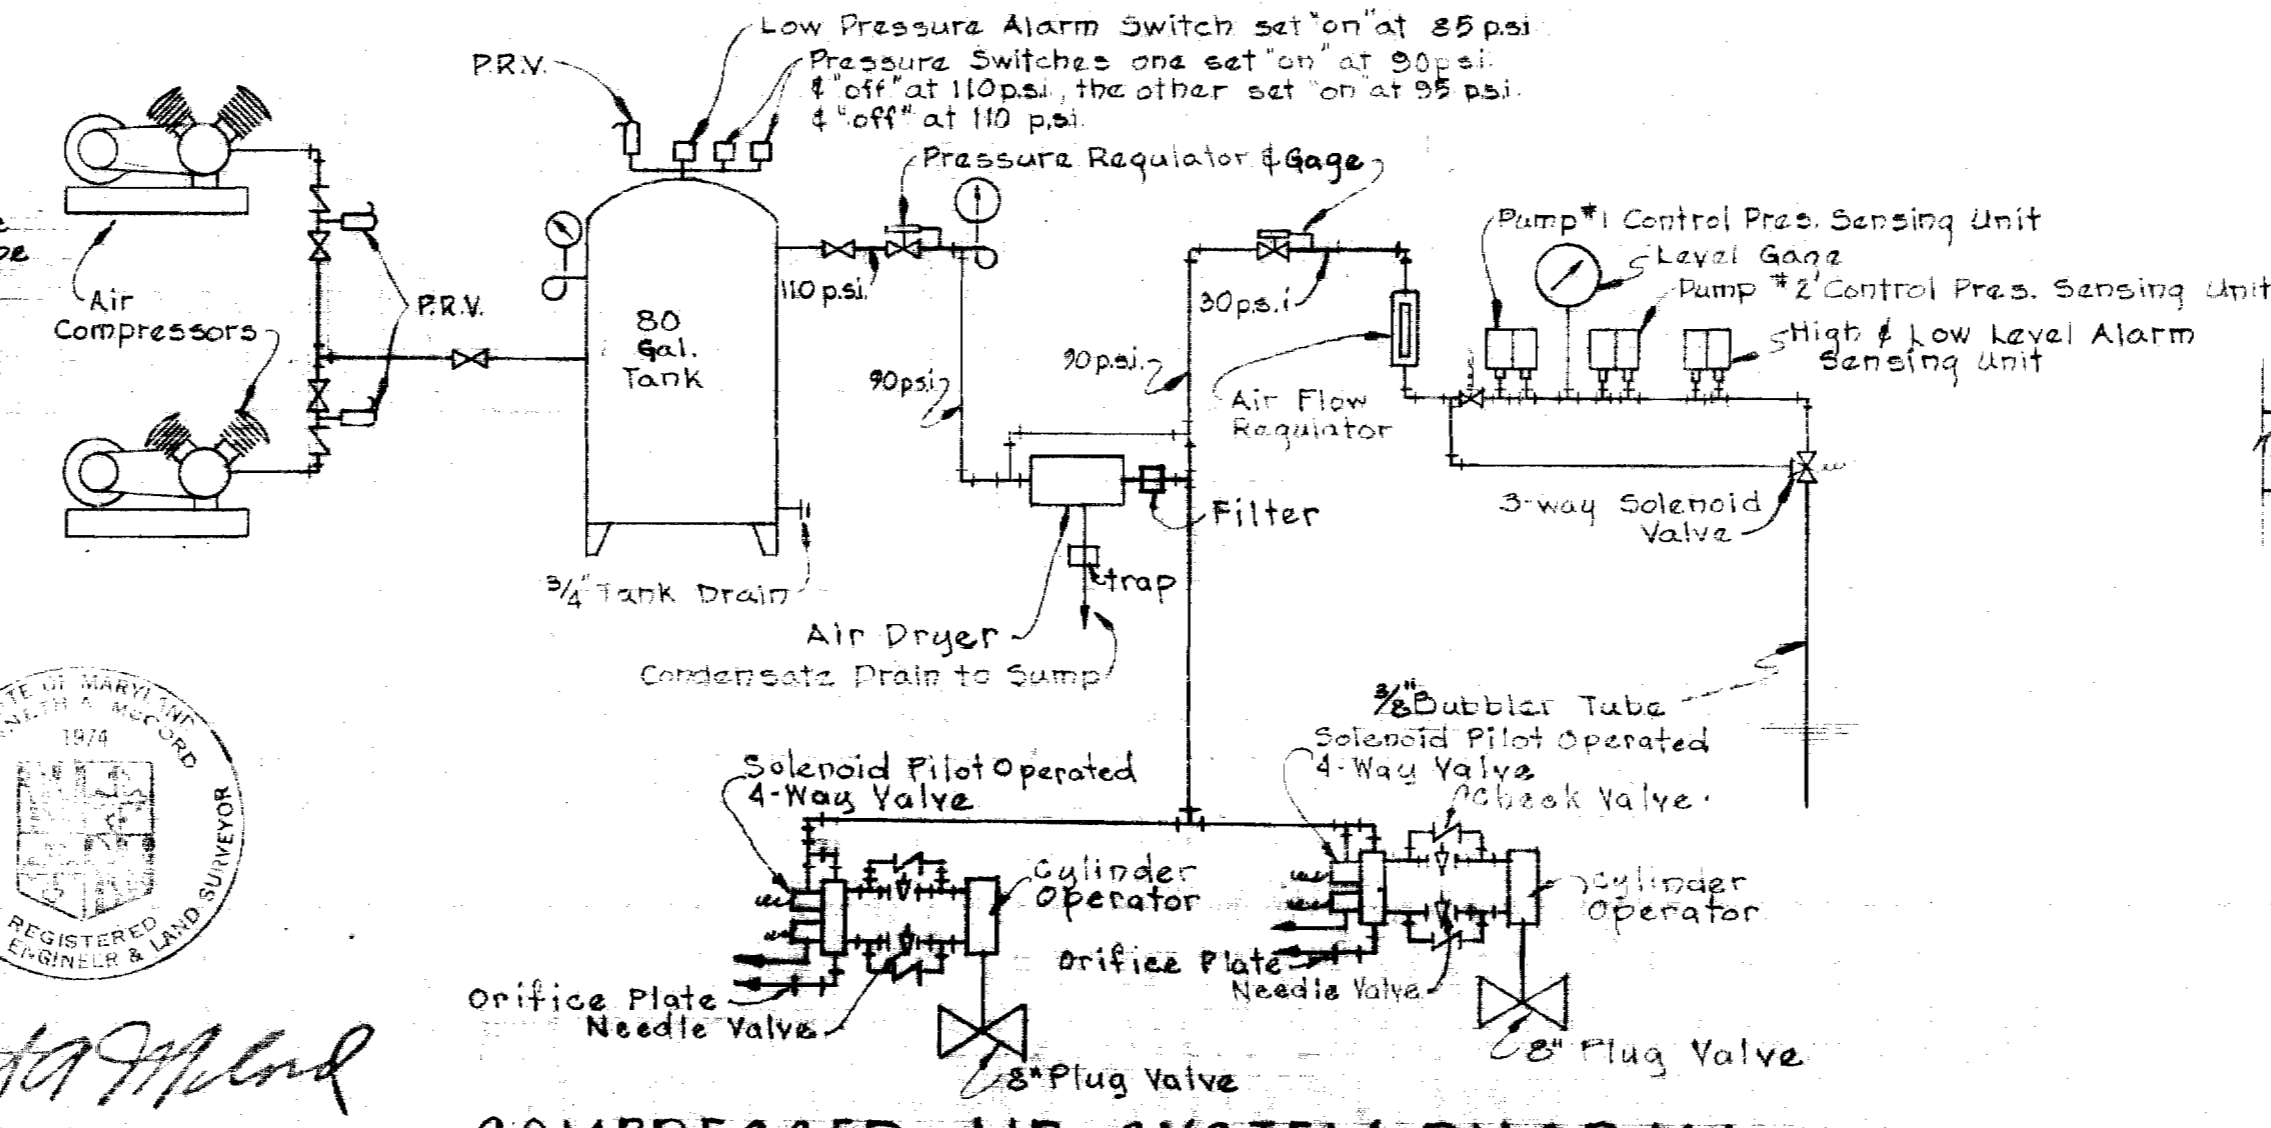 Low Pressure Alarm Switch set "on" at 85 p.si.
P.R.V.
Pressure Switches one set "on" at 90psi.
& "off" at 110p.si., the other set "on" at 95 p.s.i.
& "off" at 110 p.s.i.
Pressure Regulator & Gage
Pump #1 Control Pres. Sensing Unit
Level Gage
Pump #2 Control Pres. Sensing Unit
High & Low Level Alarm
Sensing Unit
Air
Compressors
P.R.V.
80
Gal.
Tank
110 p.s.i.
90p.s.i
90p.s.i.
30p.s.i
Air Flow
Regulator
Filter
3-way Solenoid
Valve
3/4" Tank Drain
trap
Air Dryer
Condensate Drain to Sump
3/8" Bubbler Tube
Solenoid Pilot Operated
4-Way Valve
Check Valve
Solenoid Pilot Operated
4-Way Valve
Cylinder
Operator
Cylinder
Operator
Orifice Plate
Needle Valve
Orifice Plate
Needle Valve
8" Plug Valve
8" Plug Valve
OF MARYLAND
A McCORD
1974
REGISTERED
ENGINEER & LAND SURVEYOR
COMPRESSED AIR SYSTEM DIAGRAM